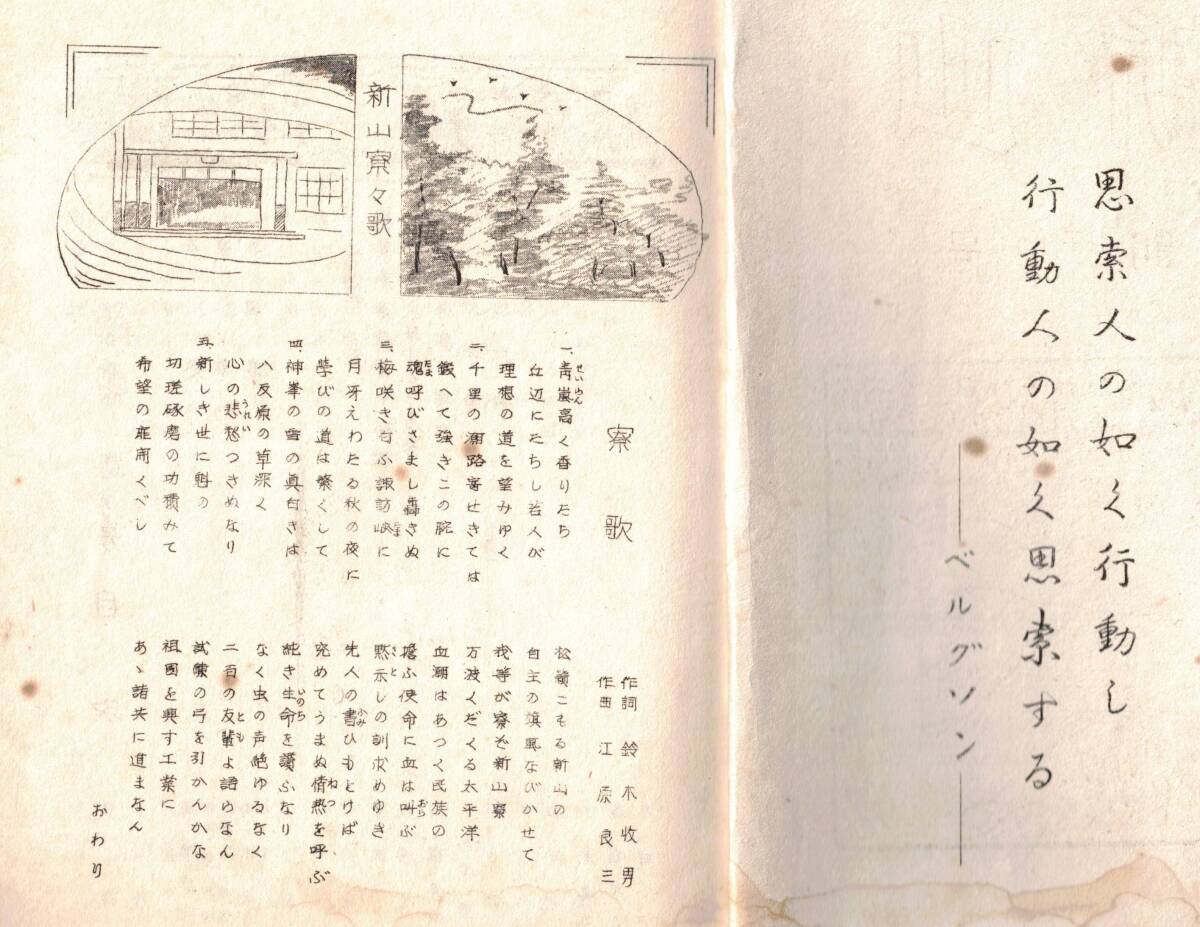 思索人の如く行動し
行動人の如く思索する
―ベルグソン―
新山寮々歌
寮歌
作詞 鈴木牧男
作曲 江原良三
一、青嵐高く香りたち 松籟こもる新山の
丘辺にたちし若人が 自主の旗風なびかせて
理想の道を望みゆく 我等が寮ぞ新山寮
二、千里の潮路寄せきては 万波くだくる太平洋
鍛へて強きこの腕に 血潮はあつく民族の
魂呼びさまし轟きぬ 担ふ使命に血は叫ぶ
三、梅咲き匂ふ諏訪峡に 黙示しの訓求めゆき
月冴えわたる秋の夜に 先人の書ひもとけば
学びの道は繁くして 究めてうまぬ情熱を呼ぶ
四、神峯の雪の真白きは 純き生命を讃ふなり
八反原の草深く なく虫の声絶ゆるなく
心の悲愁つきぬなり 二百の友輩よ語らなん
五、新しき世に魁の 試煉の弓を引かんかな
切瑳琢磨の功積みて 祖国を興す工業に
希望の扉開くべし あゝ諸共に進まなん
おわり